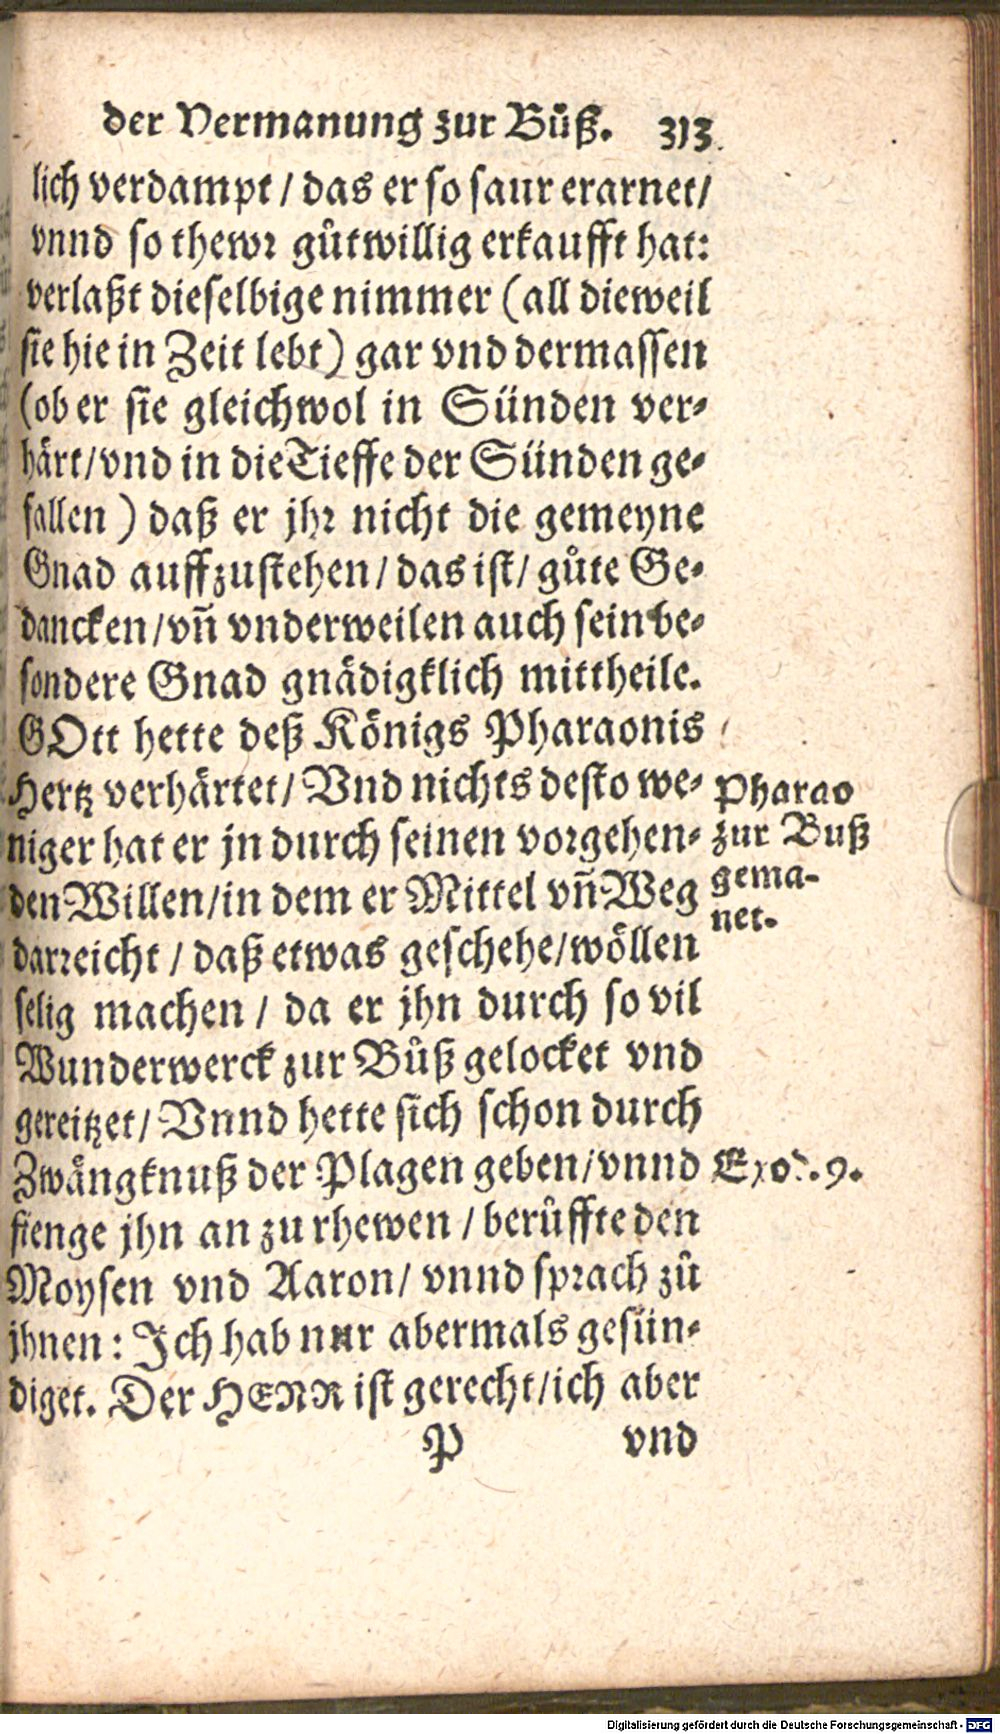 der Vermanung zur Bůß. 313.
lich verdampt / das er so saur erarnet/
vnnd so thewr gůtwillig erkaufft hat:
verlaßt dieselbige nimmer (all dieweil
sie hie in Zeit lebt) gar vnd dermassen
(ob er sie gleichwol in Sünden ver-
härt/vnd in die Tieffe der Sünden ge-
fallen ) daß er jhr nicht die gemeyne
Gnad auffzustehen/das ist/ gůte Ge-
dancken/vñ vnderweilen auch sein be-
sondere Gnad gnädigklich mittheile.
GOtt hette deß Königs Pharaonis
Hertz verhärtet/ Vnd nichts desto we-
niger hat er jn durch seinen vorgehen-
den Willen/in dem er Mittel vñ Weg
darreicht / daß etwas geschehe/wöllen
selig machen / da er jhn durch so vil
Wunderwerck zur Bůß gelocket vnd
gereitzet/ Vnnd hette sich schon durch
Zwängknuß der Plagen geben/vnnd
fienge jhn an zu rhewen / berůffte den
Moysen vnd Aaron/ vnnd sprach zů
jhnen: Ich hab nur abermals gesün-
diget. Der HERR ist gerecht/ich aber
P vnd
Pharao
zur Buß
gema-
net.
Exod. 9.
Digitalisierung gefördert durch die Deutsche Forschungsgemeinschaft - DFG